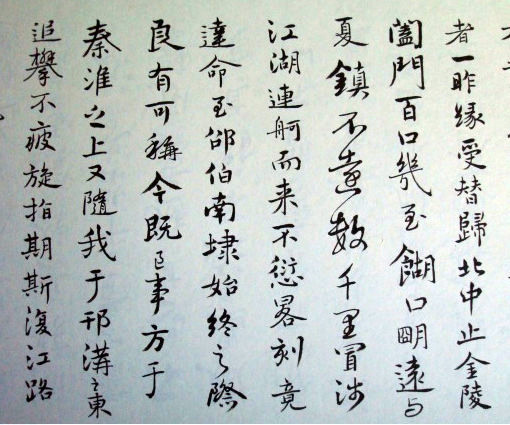 者一昨緣受替歸北中止金陵
闔門百口幾至餬口明遠與
夏鎮不遠數千里冒涉
江湖連舸而来不愆晷刻竟
達命至邰伯南埭始終之際
良有可稱今既已事方于
秦淮之上又隨我于邗溝之東
追攀不疲旋指期斯復江路